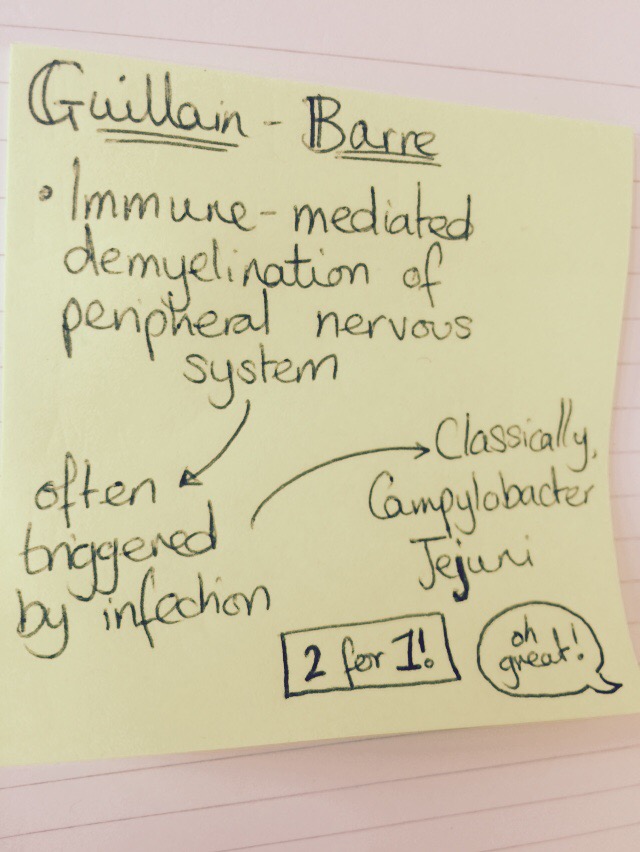 Guillain - Barre
• Immune-mediated
demyelination of
peripheral nervous
system
often
triggered
by infection
Classically,
Campylobacter
Jejuni
2 for 1!
oh
great!